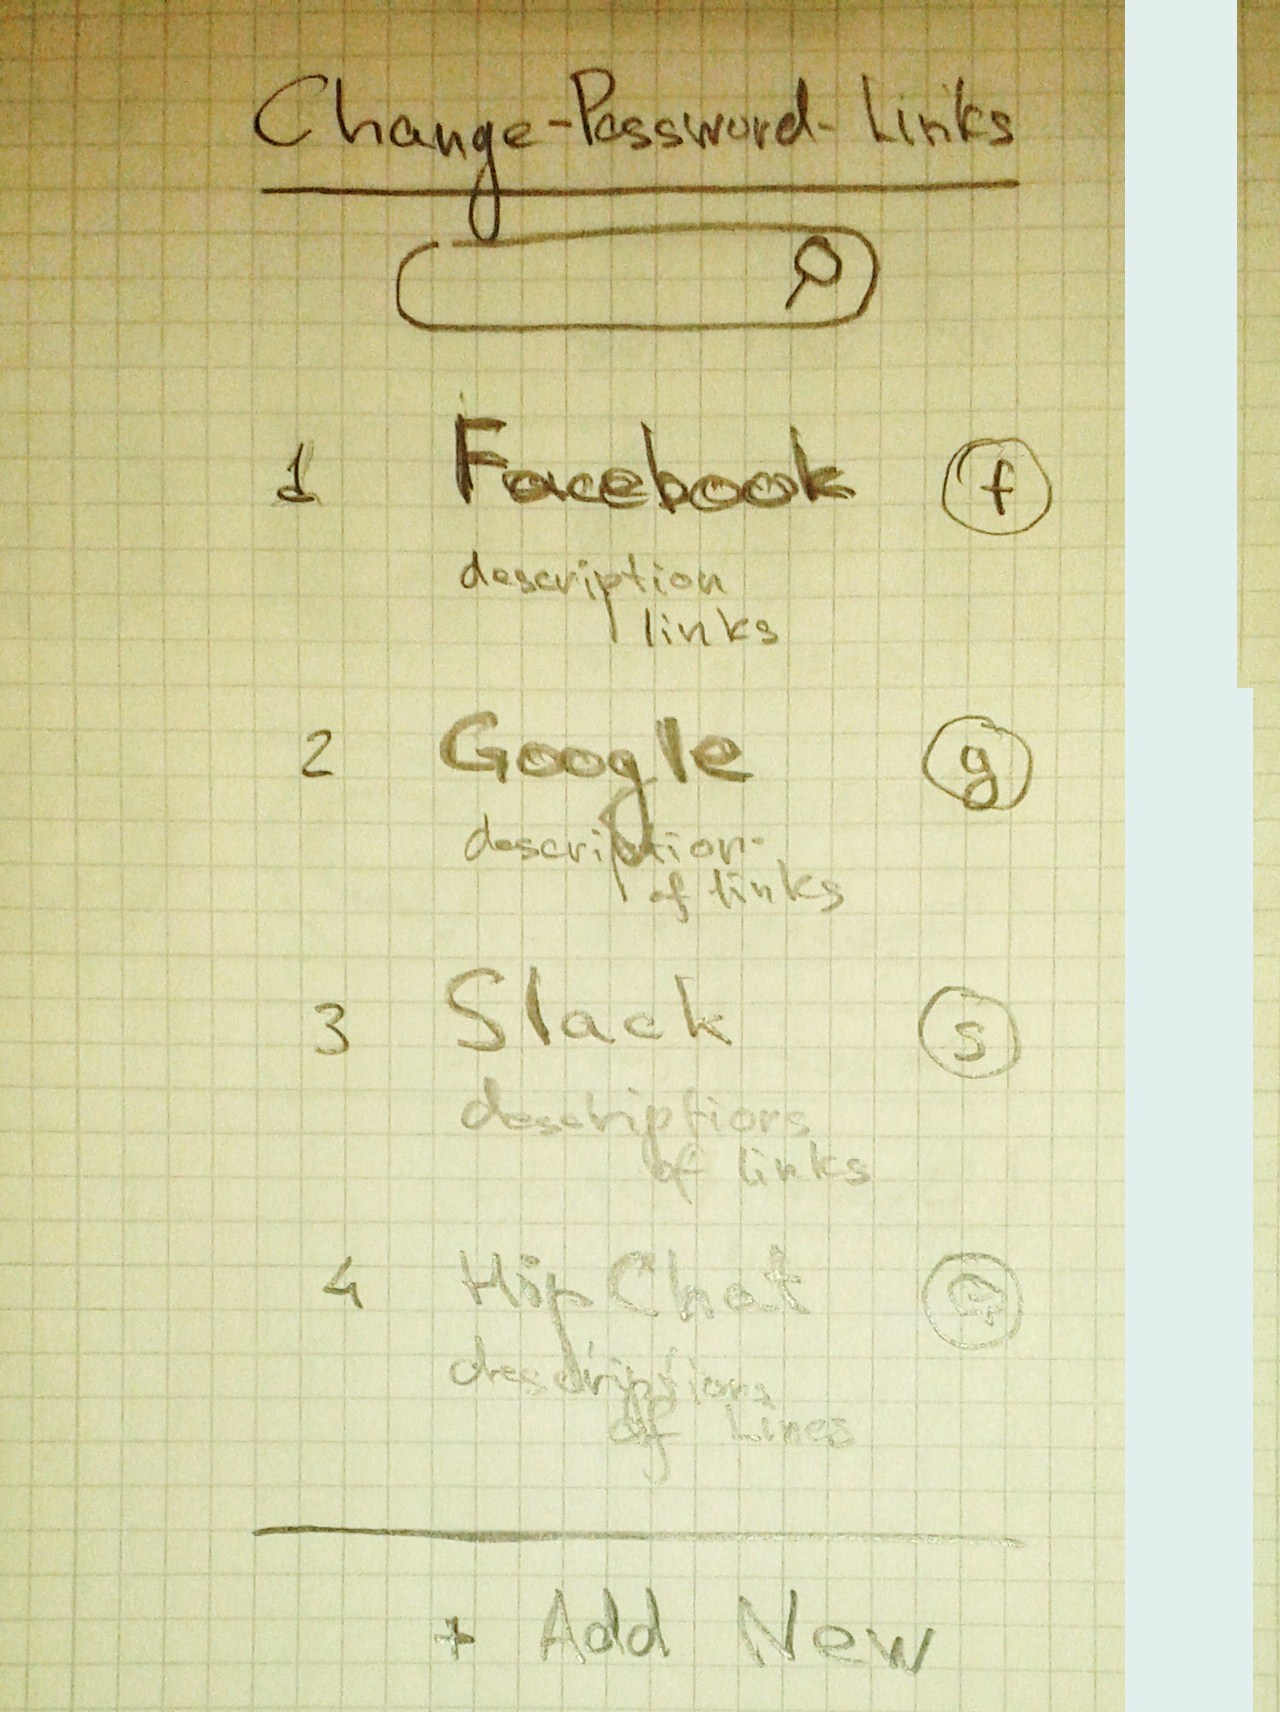 Change-Password-Links
1 Facebook f
description
links
2 Google g
description
of links
3 Slack s
descriptions
of links
4 HipChat
descriptions
of Lines
+ Add New